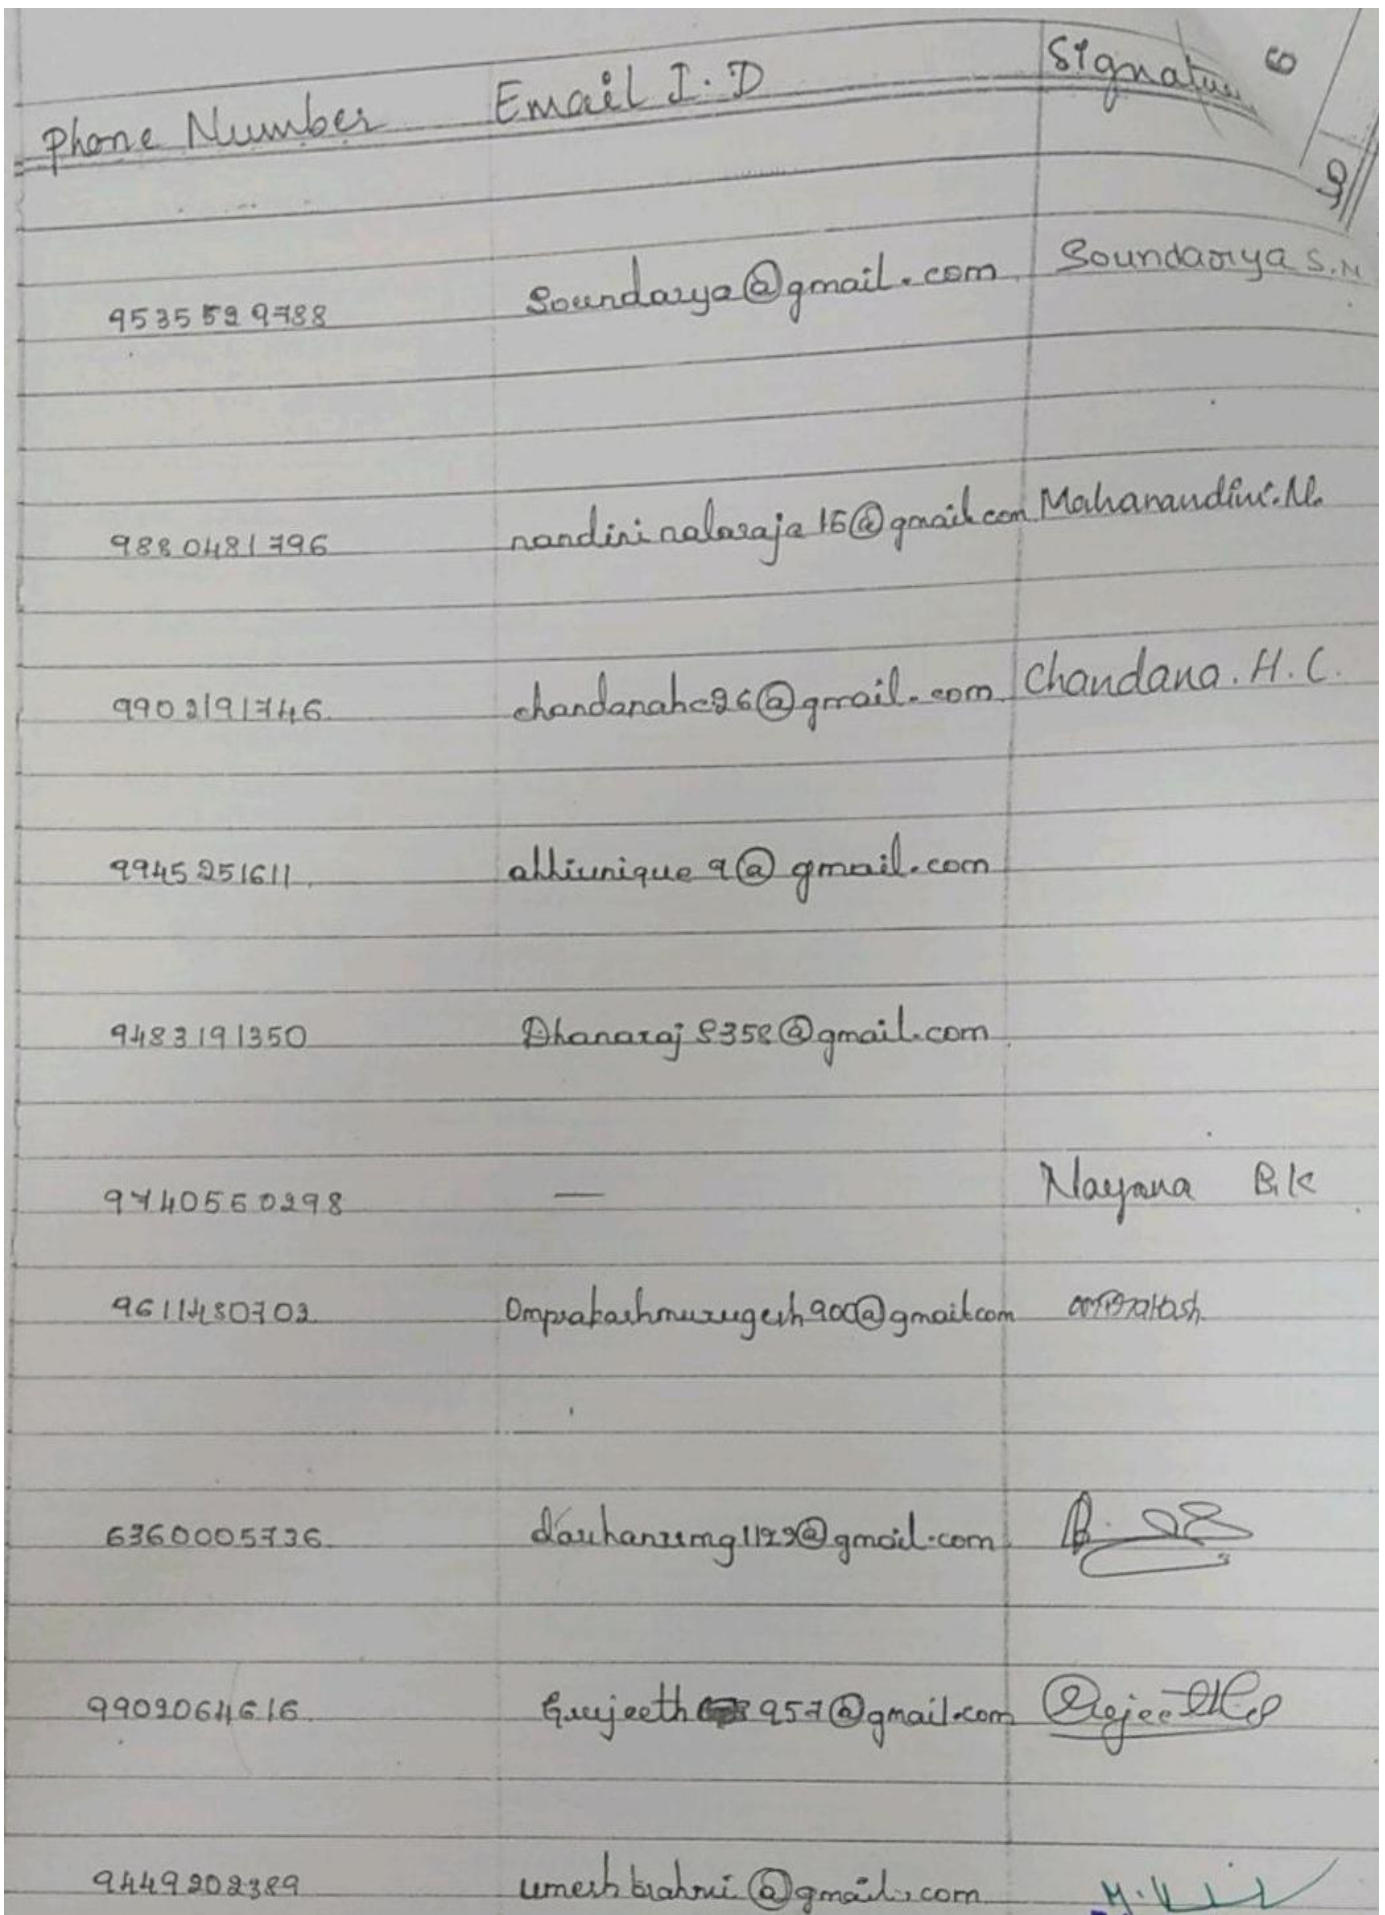 Phone Number Email I.D Signature
9535529788 Soundarya@gmail.com Soundarya S.N
9880481796 nandini nalaraja 16@gmail.com Mahanandini.N.
9902191746 chandanahc26@gmail.com Chandana.H.C.
9945251611 abhiunique 9@gmail.com
9483191350 Dhanaraj 8358@gmail.com
9740560298 — Nayana B.K
9611480702 Omprakashmurugesh900@gmail.com omprakash
6360005736 @gmail.com
9902064616 957@gmail.com
9449202389 @gmail.com